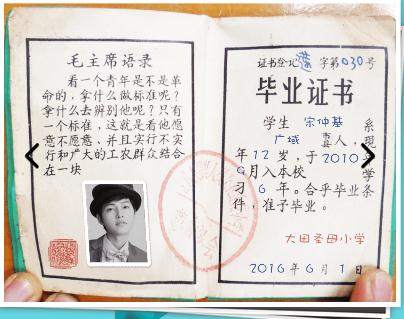 毛主席语录
看一个青年是不是革
命的，拿什么做标准呢？
拿什么去辨别他呢？只有
一个标准，这就是看他愿
意不愿意，并且实行不实
行和广大的工农群众结合
在一块
证书登记 字第030号
毕业证书
学生 宋仲基 系
广域 县人，现
年12岁，于2010年
9月入本校 学
习6年。合乎毕业条
件，准予毕业。
大田圣母小学
2016年6月1日